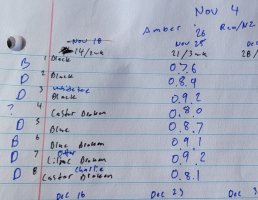 Nov 4
Amber '26 Rem/M2
Nov 18 Nov 25 Dec
14/2wk 21/3wk 28/
B 1 Black 0.7.6
D 2 Black 0.8.4
D 3 Black 0.9.2
? 4 Castor Broken 0.8.0
D 5 Blue 0.8.7
B 6 Blue Broken 0.9.1
D 7 Otter Lilac Broken 0.9.2
D 8 Charlie Castor Broken 0.8.1
Dec 16 Dec 23 Dec 3